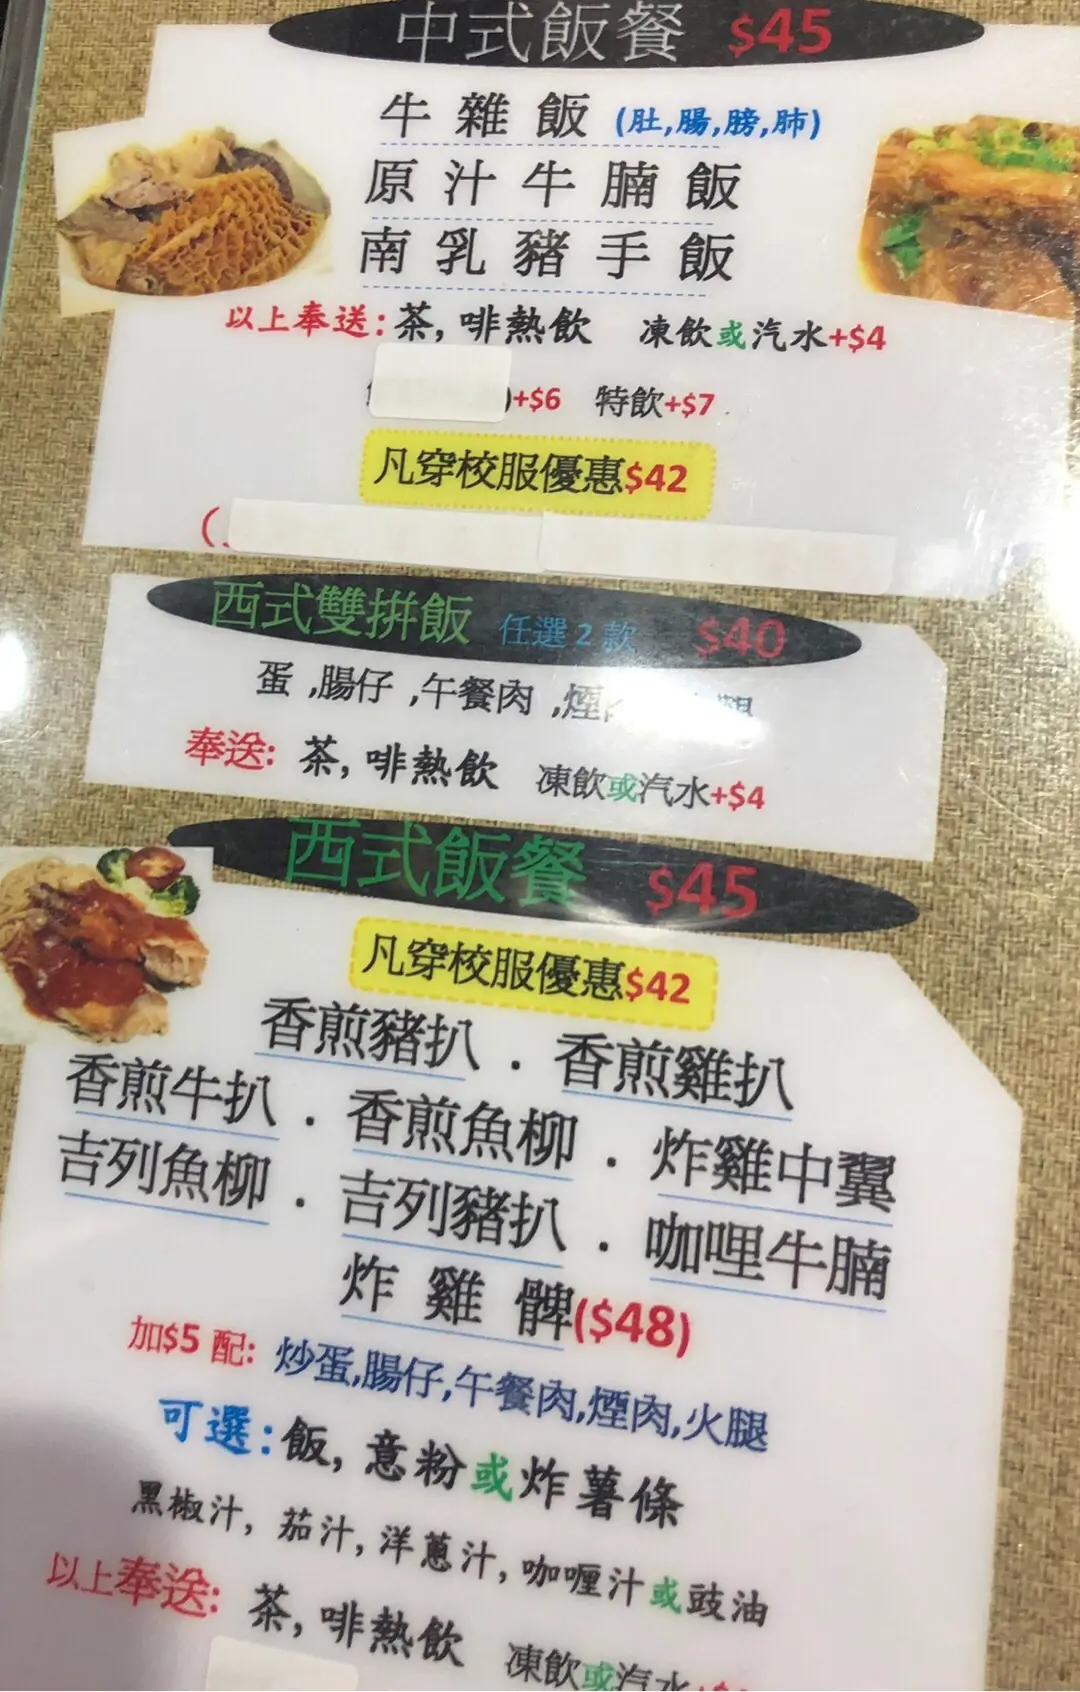 中式飯餐 $45
牛雜飯 (肚,腸,膀,肺)
原汁牛腩飯
南乳豬手飯
以上奉送:茶,啡熱飲 凍飲或汽水+$4
)+$6 特飲+$7
凡穿校服優惠$42
西式雙拼飯 任選2款 $40
蛋,腸仔,午餐肉,煙
奉送:茶,啡熱飲 凍飲或汽水+$4
西式飯餐 $45
凡穿校服優惠$42
香煎豬扒.香煎雞扒
香煎牛扒.香煎魚柳.炸雞中翼
吉列魚柳.吉列豬扒.咖哩牛腩
炸雞髀($48)
加$5配:炒蛋,腸仔,午餐肉,煙肉,火腿
可選:飯,意粉或炸薯條
黑椒汁,茄汁,洋蔥汁,咖喱汁或豉油
以上奉送:茶,啡熱飲 凍飲或汽水+$